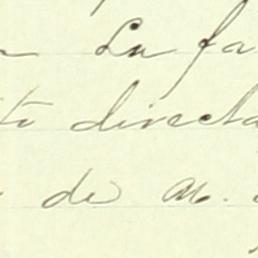 La fa
to directa
de M.